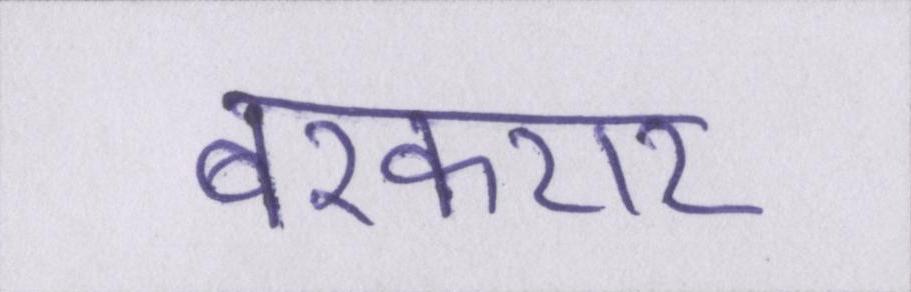 बरकरार